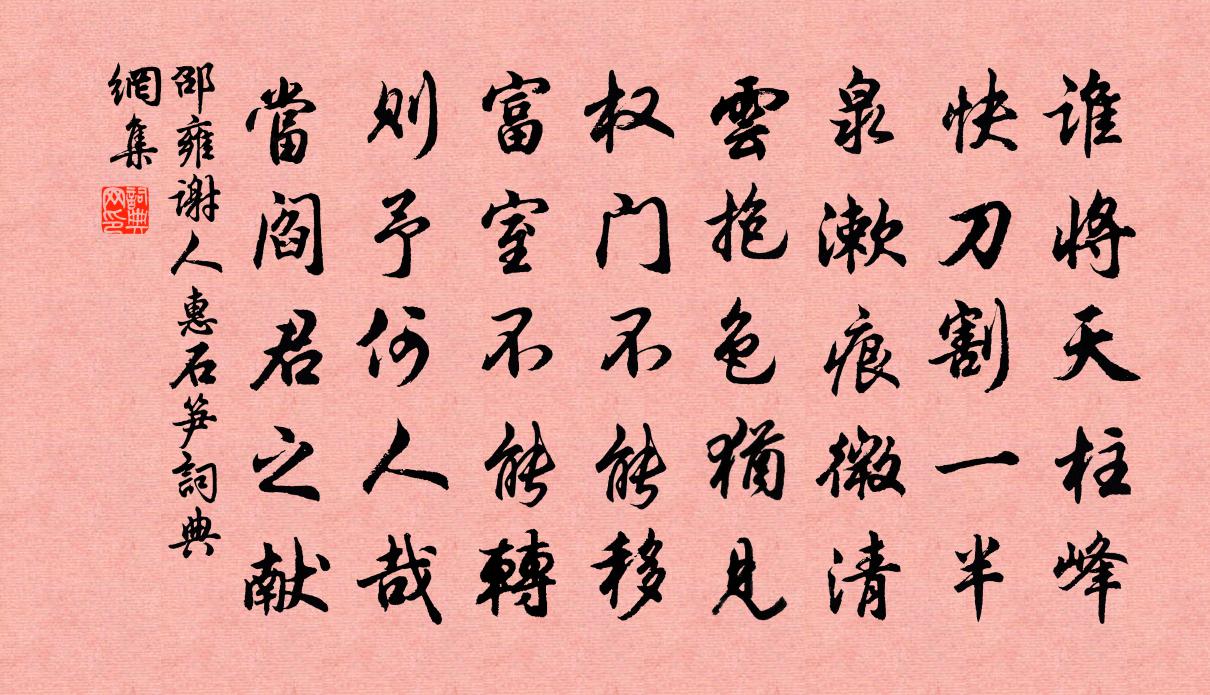 谁将天柱峰
快刀割一半
泉漱痕微清
雲抱色猶見
权门不能移
富室不能轉
则予何人哉
當阁君之献
邵雍谢人惠石笋詞典
網集
詞典网印